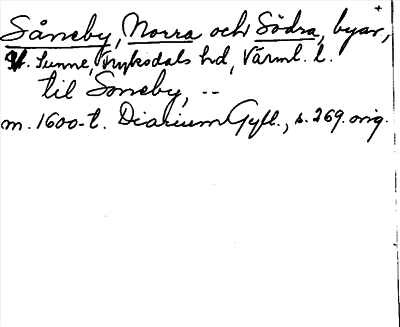 Såneby, Norra och Södra, byar,
V. Sunne, Fryksdals hd, Värml. l.
til Soneby, --
m. 1600-t. Diarium Gyll., s. 269. orig.